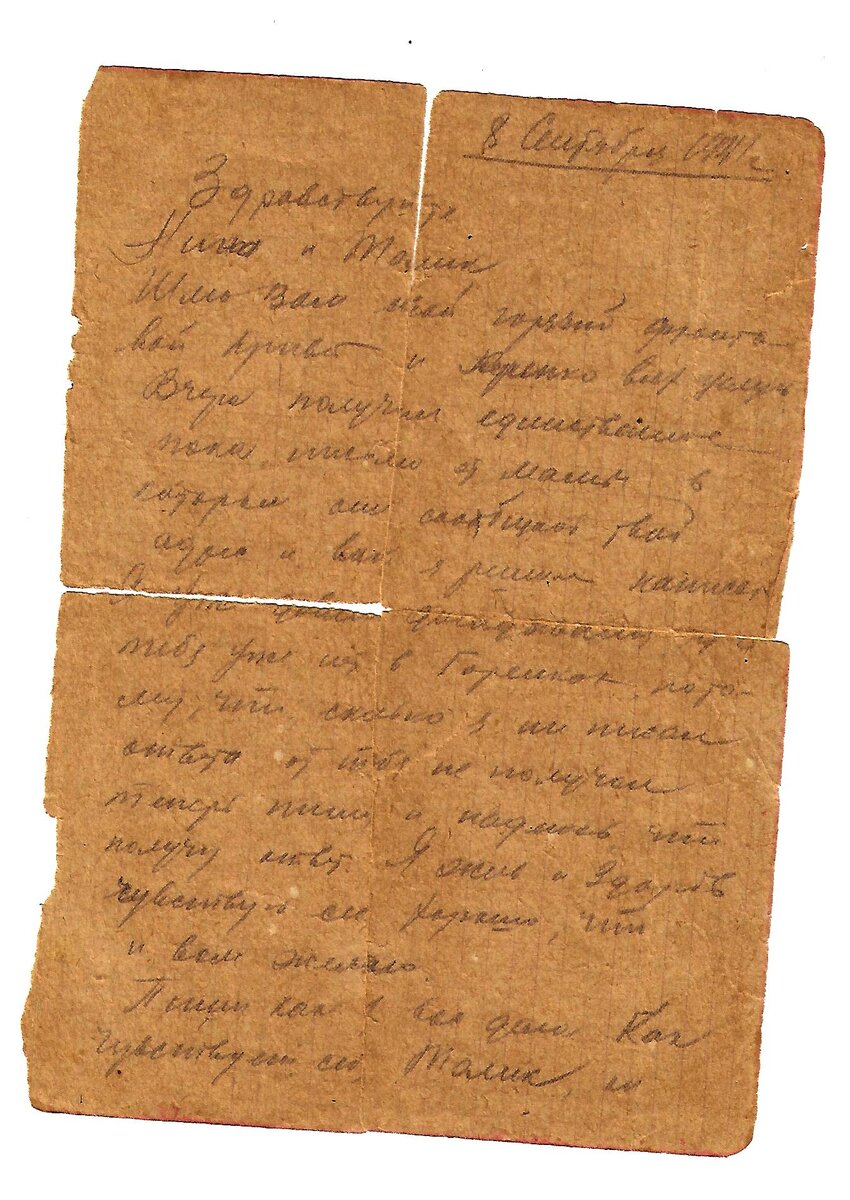 8 Сентября 1941 г.
Здравствуйте
Нина и Толик
Шлю Вам свой горячий фронто-
вой привет и крепко всех целую
Вчера получил единственное
пока письмо от мамы в
котором она сообщает твой
адрес и вот я решил написать
Я уже догадывался что
тебя уже нет в Горенках, пото-
му, что сколько я ни писал
ответа от тебя не получал
теперь пишу и надеюсь что
получу ответ. Я жив и здоров
чувствую себя хорошо, что
и вам желаю.
Пиши как у вас дела. Как
чувствует себя Толик,